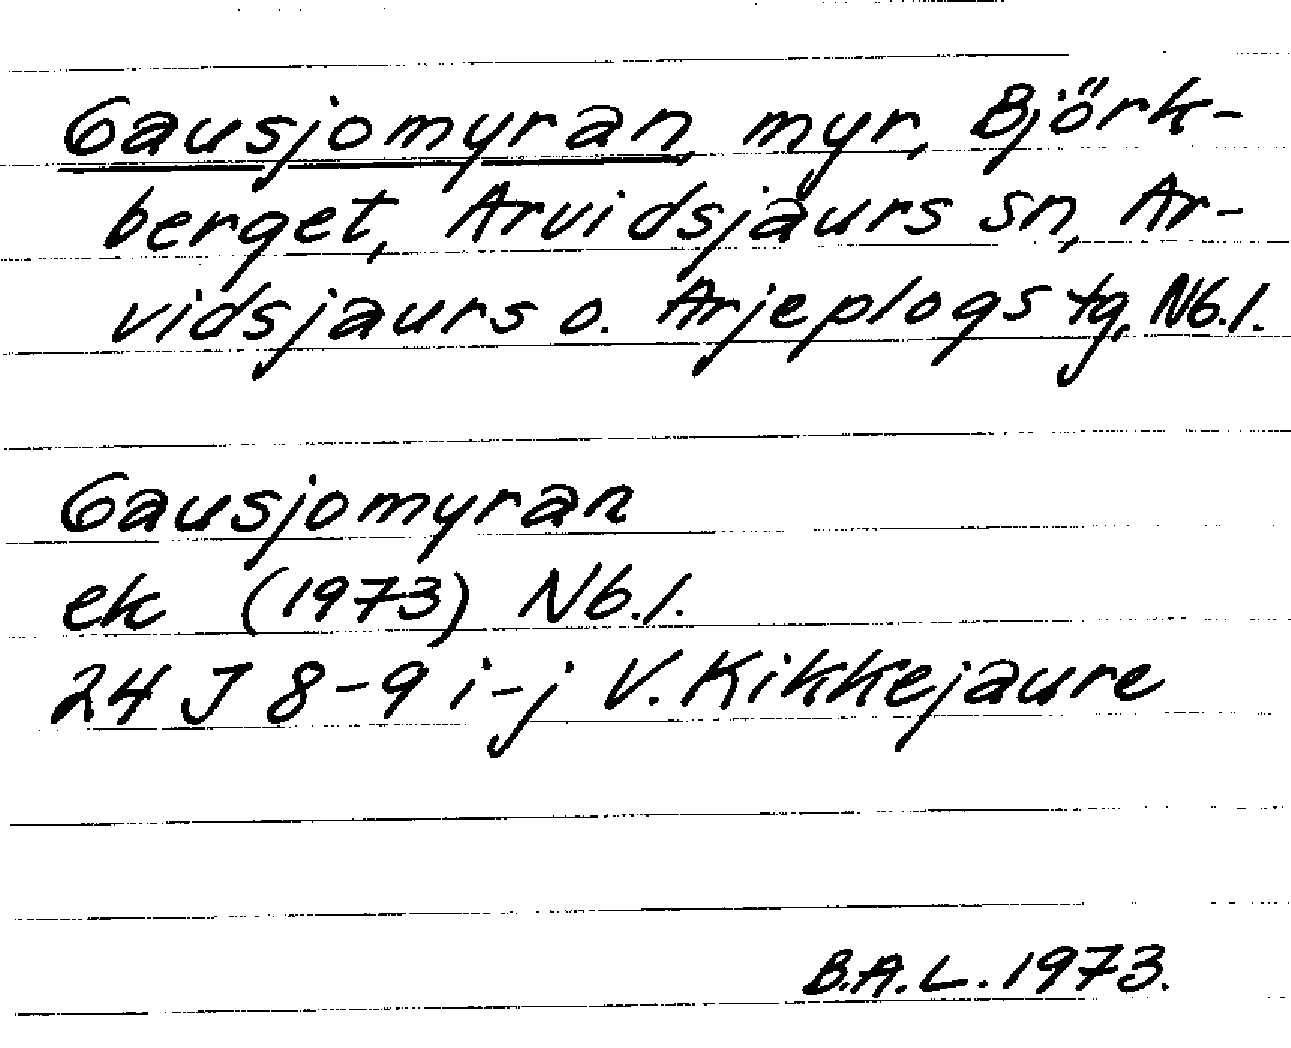 Gausjomyran, myr, Björk-
berget, Arvidsjaurs sn, Ar-
vidsjaurs o. Arjeplogs tg, Nb.l.
Gausjomyran
ek (1973) Nb.l.
24 J 8-9 i-j V. Kikkejaure
B.A.L. 1973.